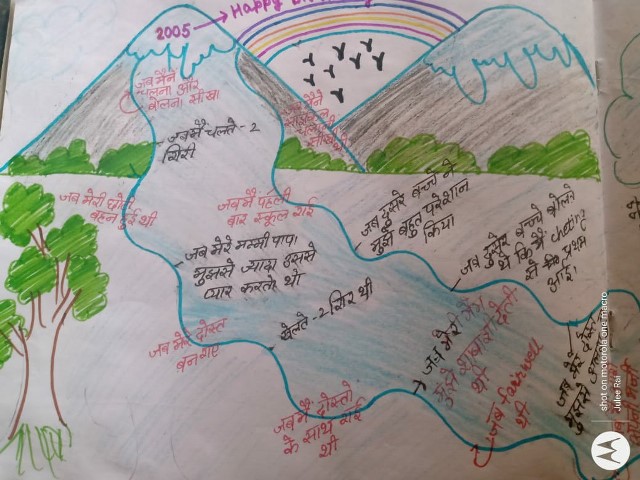 2005 → Happy
जब मैने
चलना और
बोलना सीखा
जब मैने
साइकिल
चलाना
सीखा
जब मै चलते - 2
गिरी
जब मेरी छोटी
बहन हुई थी
जब मै पहली
बार स्कूल गई
जब दुसरे बच्चे ने
मुझे बहुत परेशान
किया
जब मेरे मम्मी पापा
मुझसे ज्यादा उससे
प्यार करते थे
जब दुसरे बच्चे बोलते
थे कि मैं cheating
से प्रथम
आई।
जब मेरे दोस्त
बन गए
खेलते - 2 गिर थी
जब मेरी मैम
मुझे शाबाशी देती
थी
जब मै दोस्तो
के साथ गई
थी
जब farewell
थी
जब मेरे दोस्त
मुझसे
shot on motorola one macro
Julee Rai